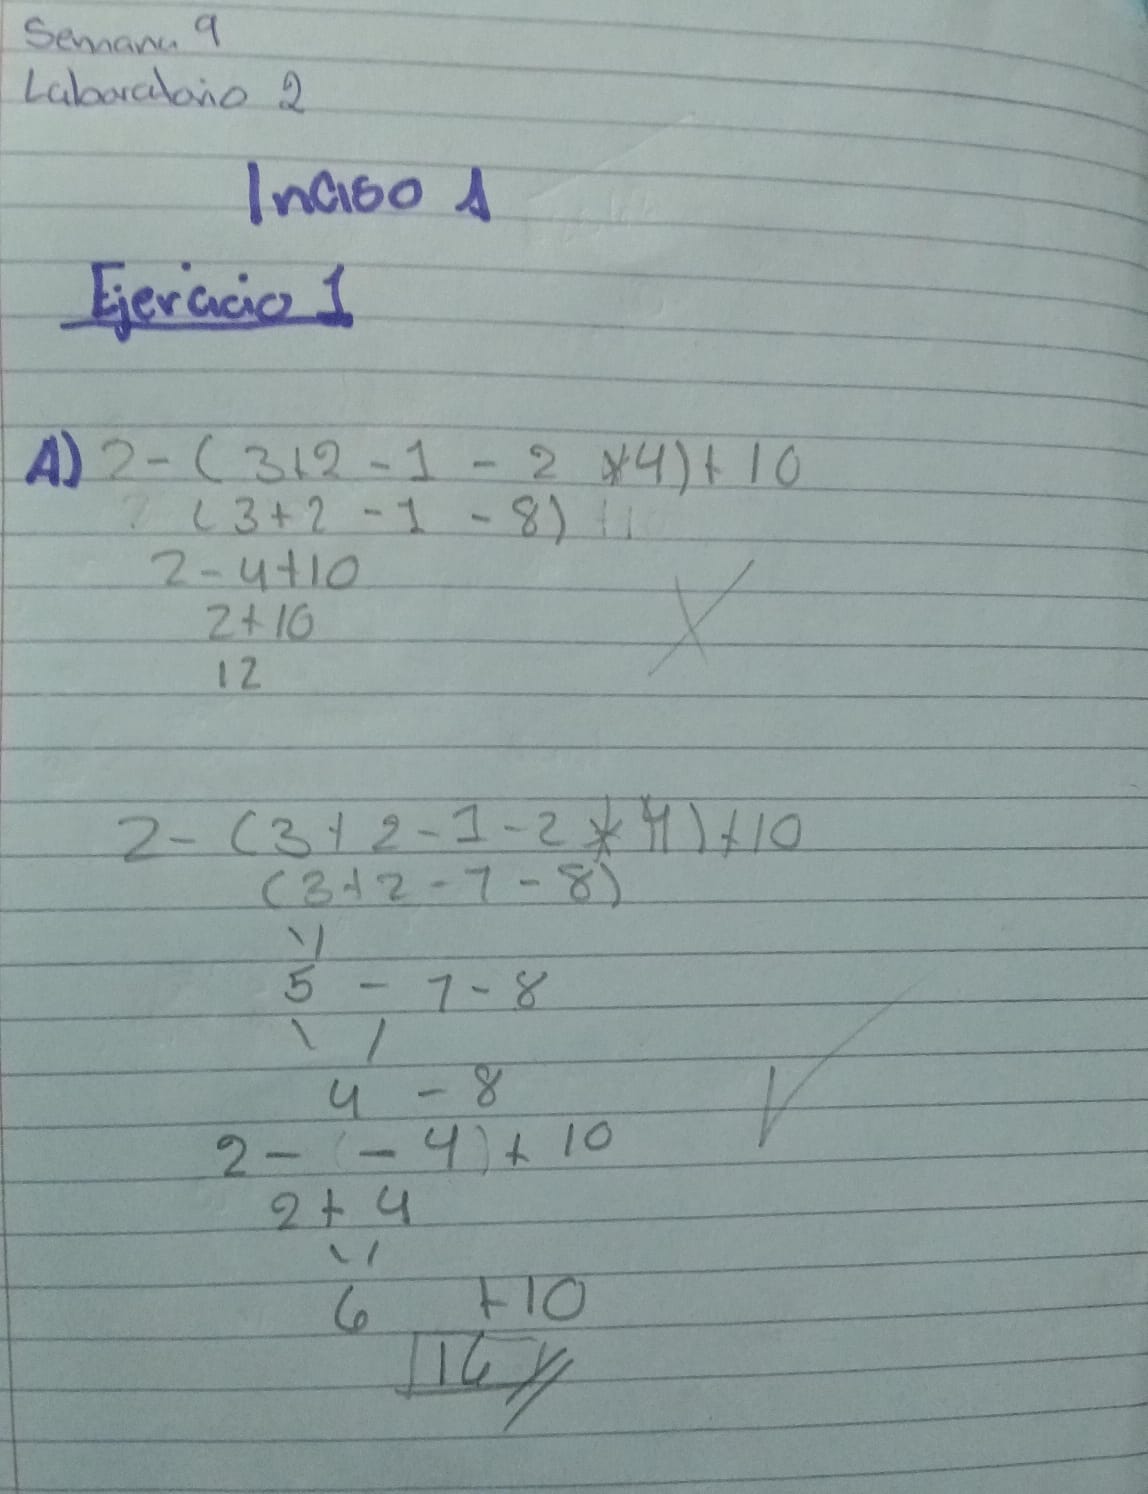 Semana 9
Laboratorio 2
Inciso 1
Ejercicio 1
A) 2 - (3+2 - 1 - 2 *4) + 10
(3+2 - 1 - 8)
2 - 4 + 10
2 + 10
12
2 - (3 + 2 - 1 - 2 * 4) + 10
(3+2 - 1 - 8)
5 - 1 - 8
4 - 8
2 - ( - 4) + 10
2 + 4
6 + 10
16